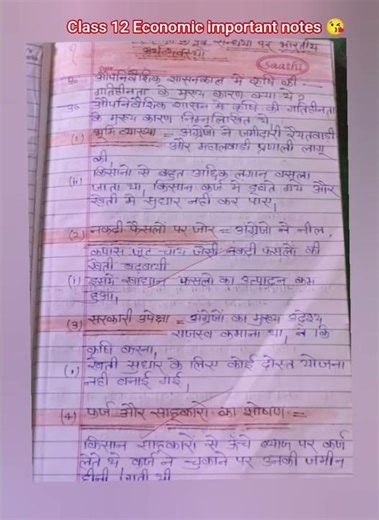 Class 12 Economic important notes 😘
पर भारतीय
अर्थव्यवस्था
saathi
प्र० औपनिवेशिक शासनकाल में कृषि की
गतिहीनता के मुख्य कारण क्या थे?
उ० औपनिवेशिक शासन में कृषि की गतिहीनता
के मुख्य कारण निम्नलिखित थे,
(1) भूमि व्यवस्था = अंग्रेजो ने जमींदारी रैयतवाडी
और महालवाडी प्रणाली लागू
की,
(ii) किसानो से बहुत अधिक लगान वसूला
जाता था, किसान कर्ज में डूबते गये और
खेती में सुधार नही कर पाए,
(2) नकदी फसलों पर जोर = अंग्रेजो ने नील,
कपास जूट चाय जैसी नकदी फसलों की
खेती बढवायी
(1) इससे खाद्यान्न फसलों का उत्पादन कम
हुआ,
(3) सरकारी उपेक्षा = अंग्रेजों का मुख्य उद्देश्य
राजस्व कमाना था, न कि
कृषि करना,
खेती सुधार के लिए कोई ठोस योजना
नही बनाई गई,
(4) कर्ज और साहूकारो का शोषण =
किसान साहूकारो से ऊँचे ब्याज पर कर्ज
लेते थे कर्ज न चुकाने पर उनकी जमीन